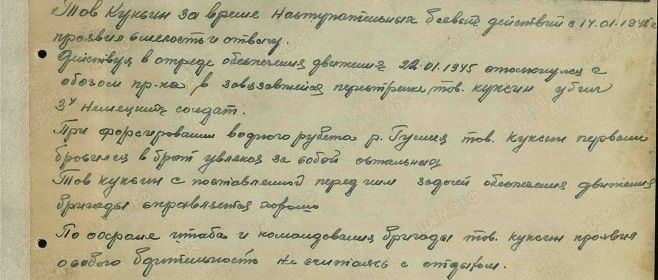 Тов Куксин за время наступательных боевых действий с 14.01.1945 г
проявил смелость и отвагу.
Действуя в отряде обеспечения движения 22.01.1945 столкнулся с
обозом пр-ка в завязавшейся перестрелке тов. Куксин убил
3х немецких солдат.
При форсировании водного рубежа р. тов. Куксин первым
бросился в брод увлекая за собой остальных
Тов Куксин с поставленной перед ним задачей обеспечения движения
бригады справляется хорошо
По охране штаба и командования бригады тов. Куксин проявил
особого бдительность не считаясь с отдыхом.